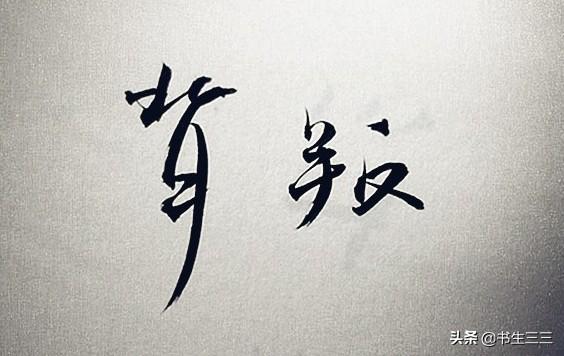 背叛
头条 @书生三三